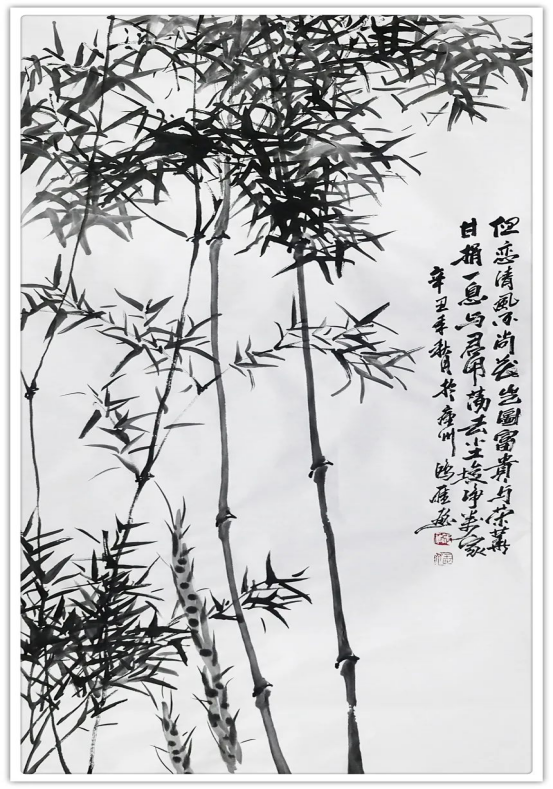 但恋清风不尚花岂图富贵与荣华
甘捐一息与君用荡去尘埃净万家
辛丑年秋月于 州鸿雁